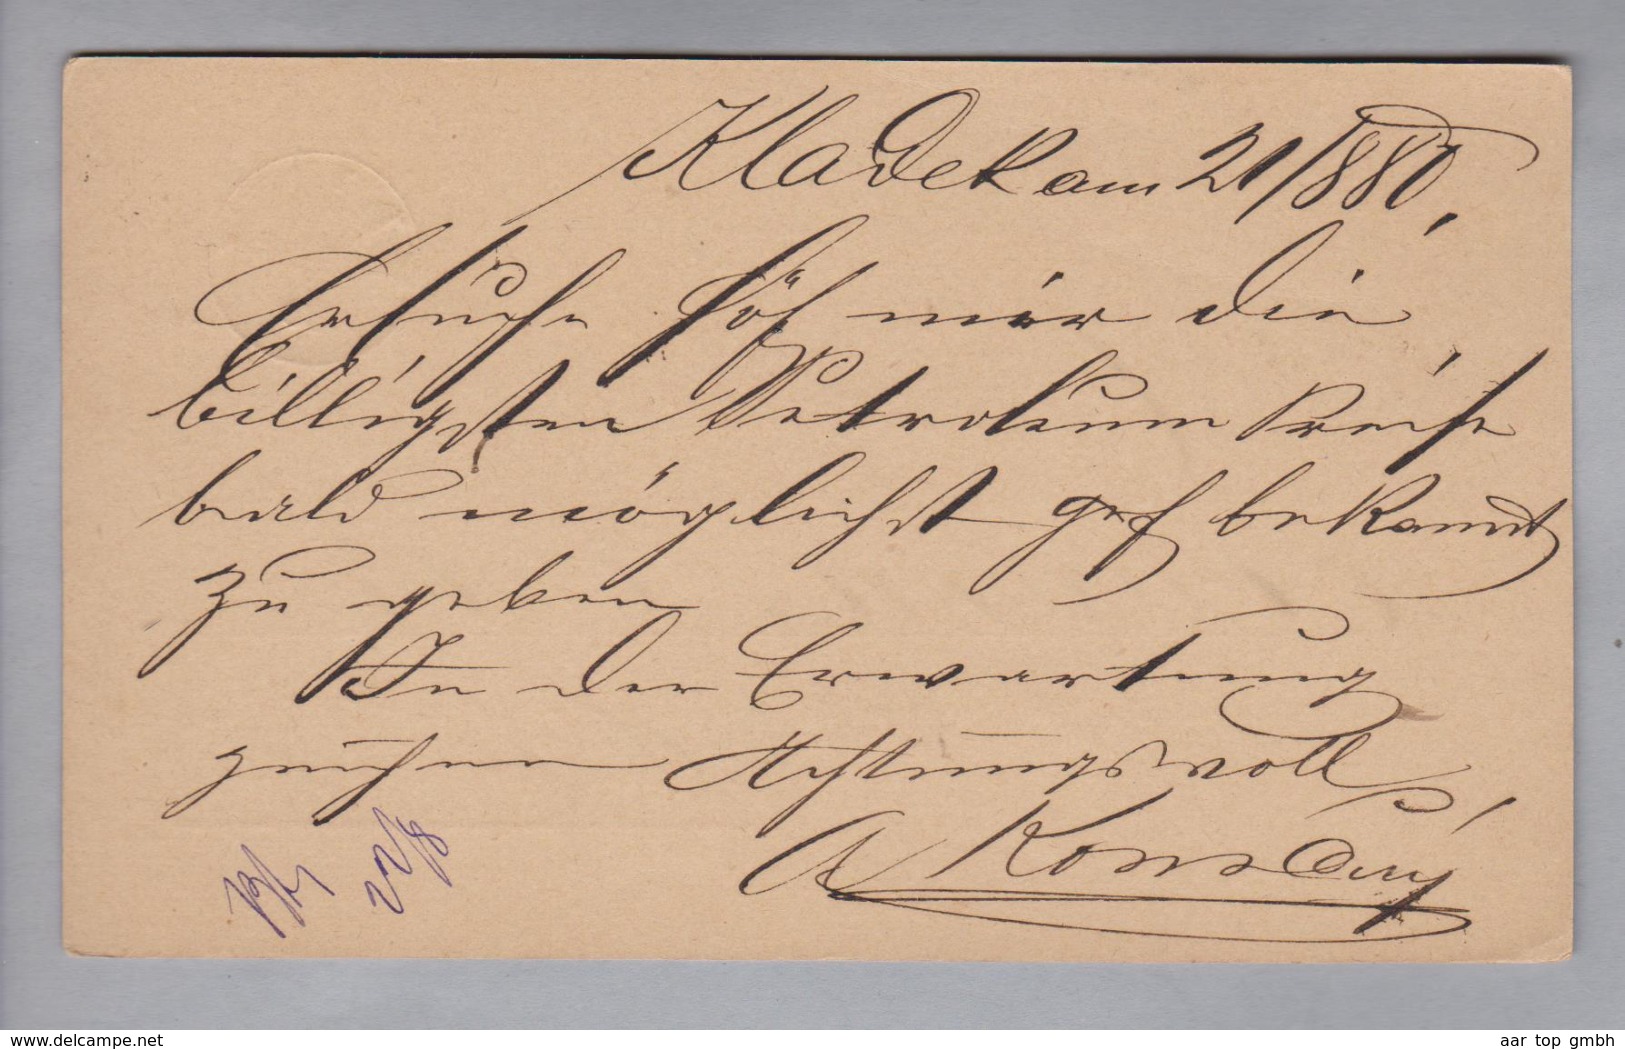 Kladek am 21/8 80.
Ersuche höf mir die
billigsten Petroleum Preise
bald möglichst gef bekannt
zu geben
In der Erwartung
zeichne Achtungsvoll
A
22/8
www.delcampe.net
aar top gmbh